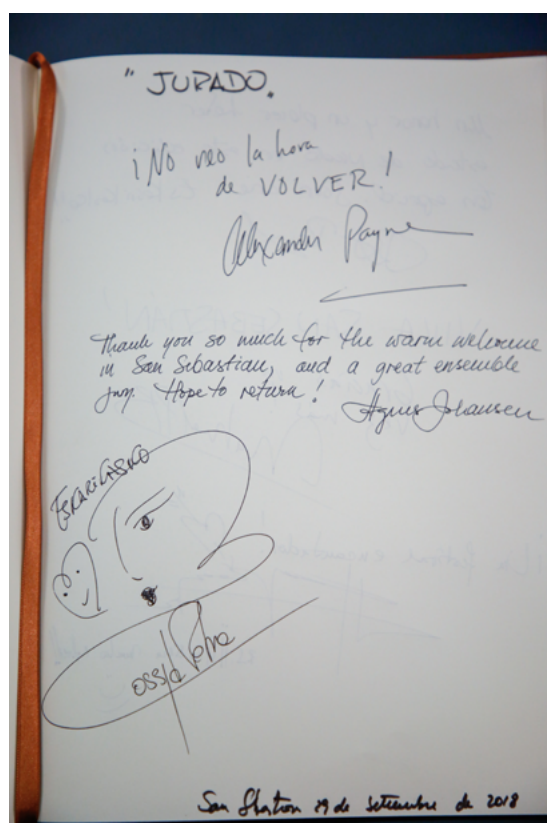 " JURADO.
¡No veo la hora
de VOLVER!
Alexander Payne
Thank you so much for the warm welcome
in San Sebastian, and a great ensemble
jury. Hope to return!
Agnes Johansen
ESKARRIKASKO
Rossy de Palma
29 de setiembre de 2018